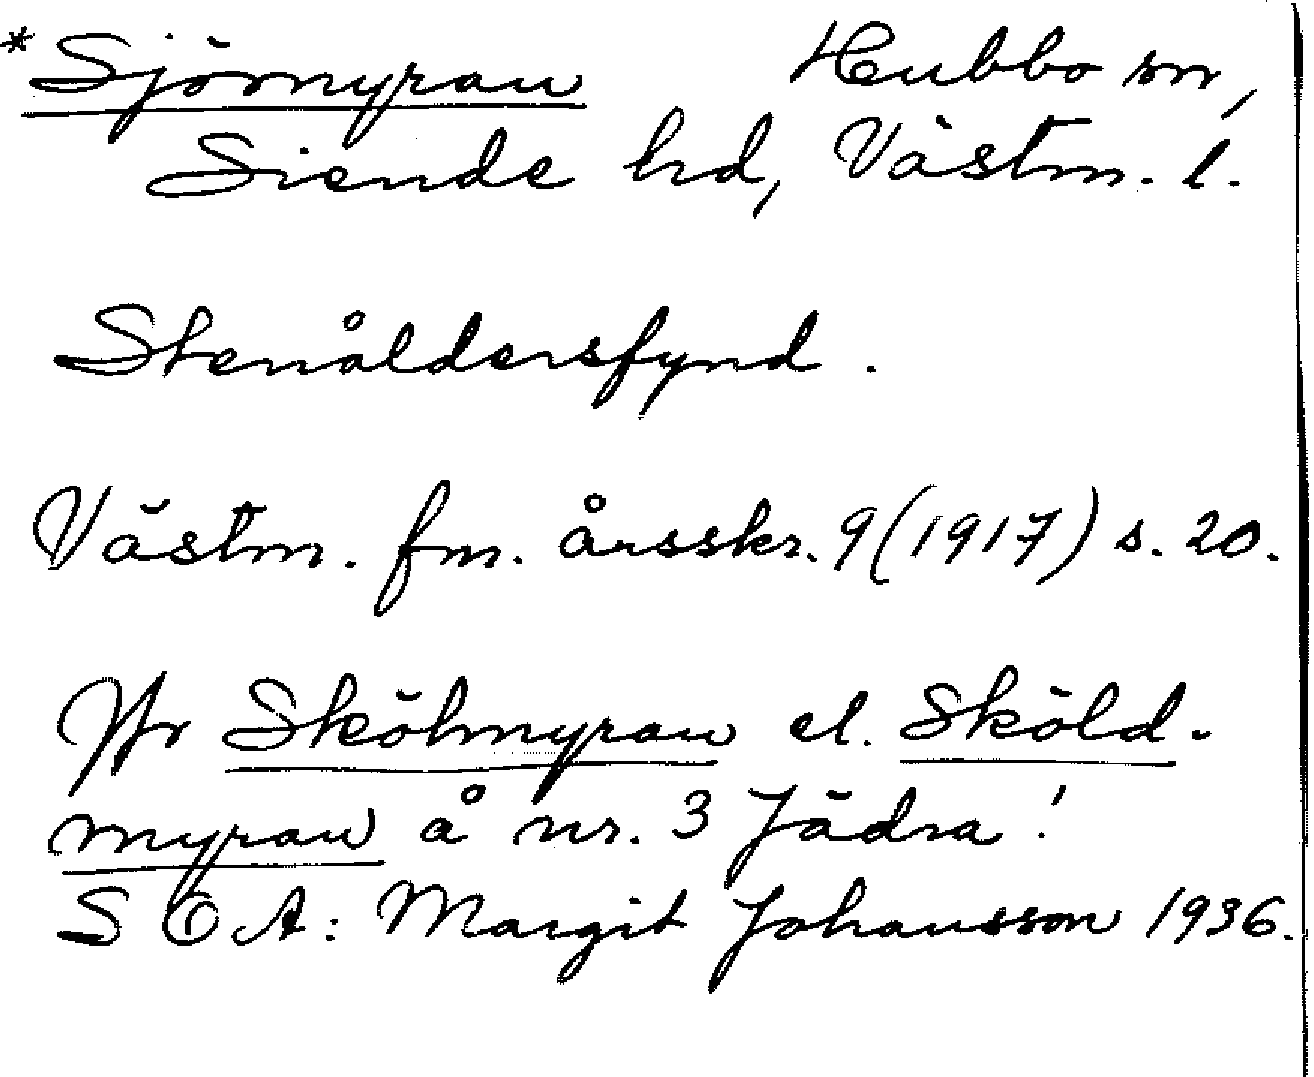 *Sjömyran Hubbo sn,
Siende hd, Västm. l.
Stenåldersfynd.
Västm. fm. årsskr. 9 (1917) s. 20.
Jfr Skölmyran el. Sköld-
myran å nr. 3 Jädra!
S O A: Margit Johansson 1936.